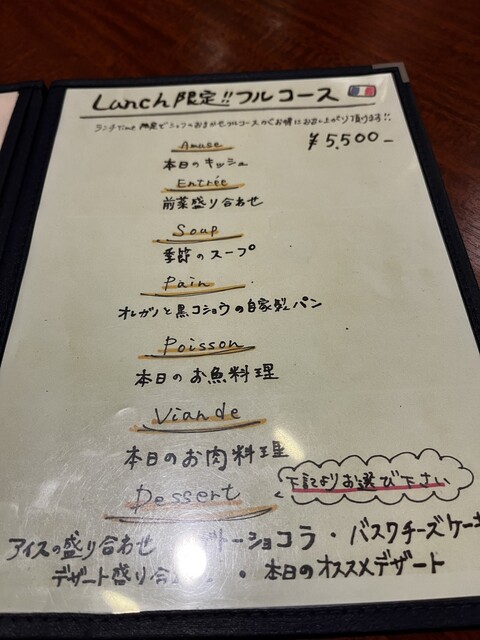 Lunch限定!!フルコース
ランチTime限定でシェフのおまかせフルコースがお得にお召し上がり頂けます!!
¥5,500-
Amuse
本日のキッシュ
Entrée
前菜盛り合わせ
Soup
季節のスープ
Pain
オレガノと黒コショウの自家製パン
Poisson
本日のお魚料理
Viande
本日のお肉料理
Dessert
下記よりお選び下さい
アイスの盛り合わせ トーショコラ・バスクチーズケーキ
デザート盛り合 ・本日のオススメデザート